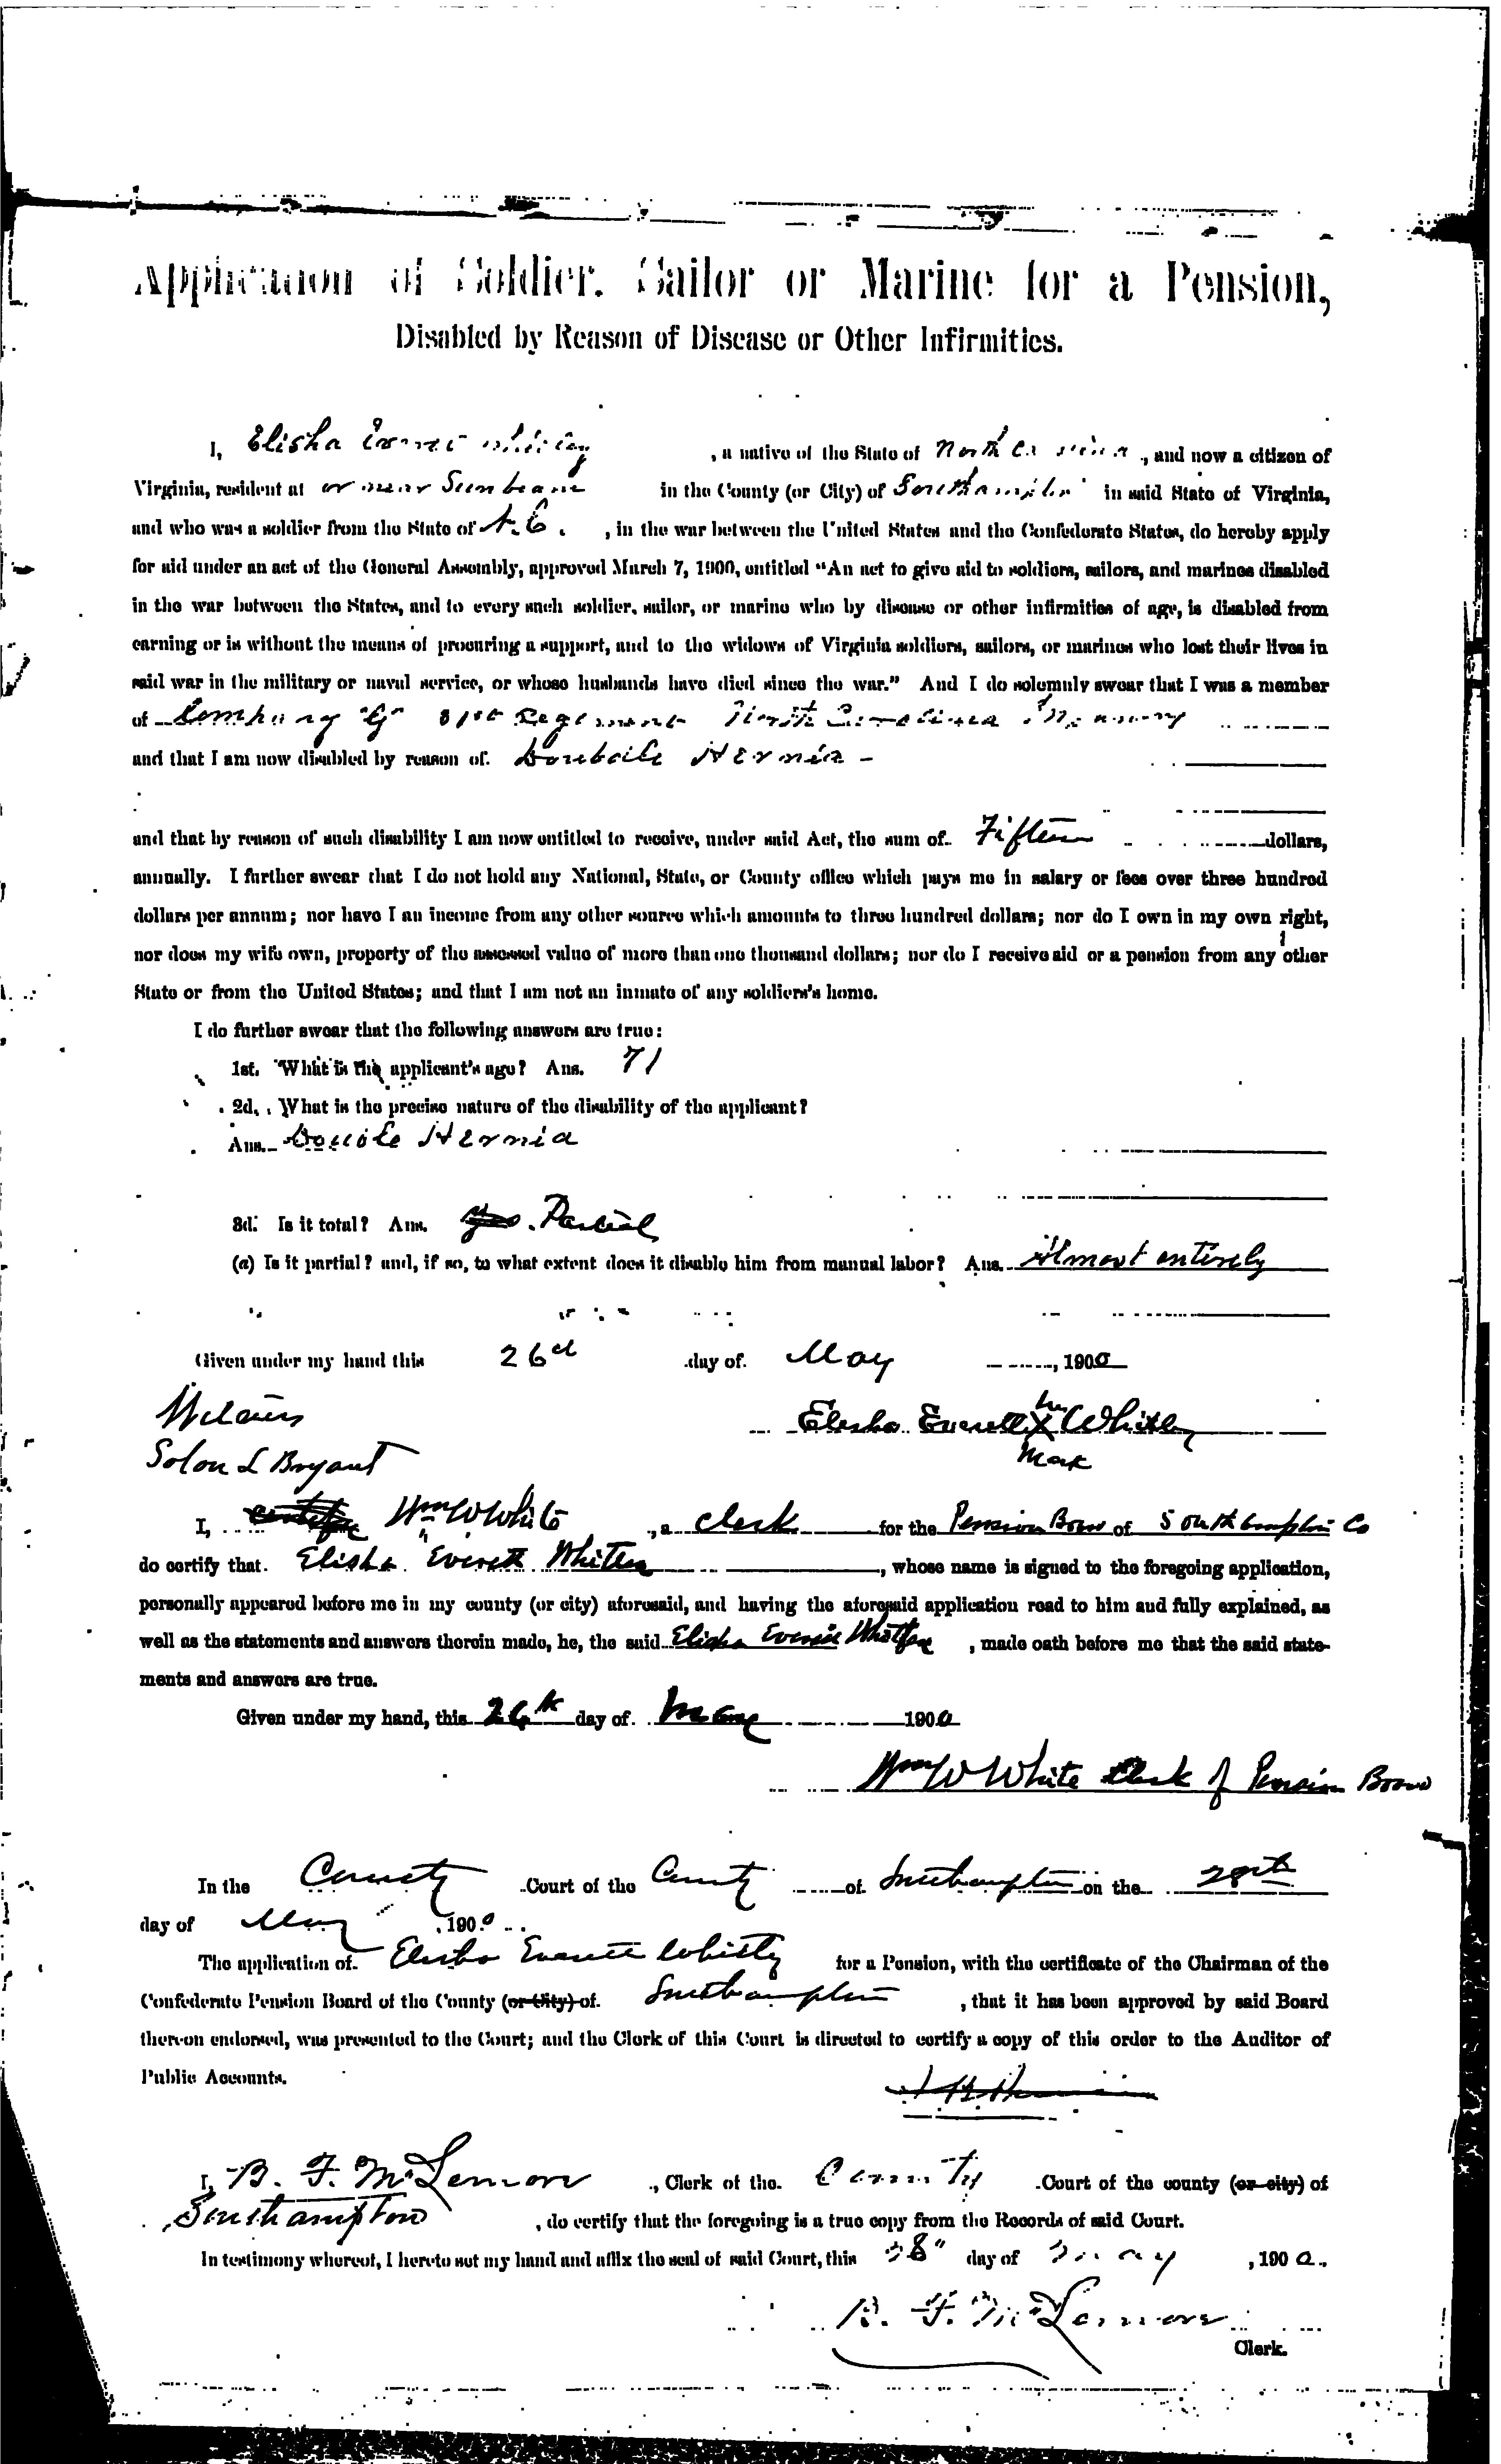 Application of Soldier, Sailor or Marine for a Pension,
Disabled by Reason of Disease or Other Infirmities.
I, Elisha Everett Whitley, a native of the State of North Carolina, and now a citizen of
Virginia, resident at or near Sunbeam in the County (or City) of Southampton in said State of Virginia,
and who was a soldier from the State of N. C., in the war between the United States and the Confederate States, do hereby apply
for aid under an act of the General Assembly, approved March 7, 1900, entitled "An act to give aid to soldiers, sailors, and marines disabled
in the war between the States, and to every such soldier, sailor, or marine who by disease or other infirmities of age, is disabled from
earning or is without the means of procuring a support, and to the widows of Virginia soldiers, sailors, or marines who lost their lives in
said war in the military or naval service, or whose husbands have died since the war." And I do solemnly swear that I was a member
of Company "G" 31st Regiment North Carolina
and that I am now disabled by reason of Double Hernia -
and that by reason of such disability I am now entitled to receive, under said Act, the sum of Fifteen dollars,
annually. I further swear that I do not hold any National, State, or County office which pays me in salary or fees over three hundred
dollars per annum; nor have I an income from any other source which amounts to three hundred dollars; nor do I own in my own right,
nor does my wife own, property of the assessed value of more than one thousand dollars; nor do I receive aid or a pension from any other
State or from the United States; and that I am not an inmate of any soldiers's home.
I do further swear that the following answers are true:
1st. What is the applicant's age? Ans. 71
2d. What is the precise nature of the disability of the applicant?
Ans. Double Hernia
3d. Is it total? Ans. Yes. Partial
(a) Is it partial? and, if so, to what extent does it disable him from manual labor? Ans. Almost entirely
Given under my hand this 26d day of May, 1900
Witness Elisha Everett his X Whitley
Solon L Bryant mark
I, Wm W White, a Clerk for the Pension Board of Southampton Co
do certify that Elisha Everett Whitley, whose name is signed to the foregoing application,
personally appeared before me in my county (or city) aforesaid, and having the aforesaid application read to him and fully explained, as
well as the statements and answers therein made, he, the said Elisha Everett Whitley, made oath before me that the said state-
ments and answers are true.
Given under my hand, this 26th day of May 1900
Wm W White Clerk of Pension Board
In the County Court of the County of Southampton on the 28th
day of May, 1900.
The application of Elisha Everett Whitley for a Pension, with the certificate of the Chairman of the
Confederate Pension Board of the County (or City) of Southampton, that it has been approved by said Board
thereon endorsed, was presented to the Court; and the Clerk of this Court is directed to certify a copy of this order to the Auditor of
Public Accounts.
I, B. F. McLemore, Clerk of the County Court of the county (or city) of
Southampton, do certify that the foregoing is a true copy from the Records of said Court.
In testimony whereof, I hereto set my hand and affix the seal of said Court, this 28" day of May, 1900.
B. F. McLemore
Clerk.